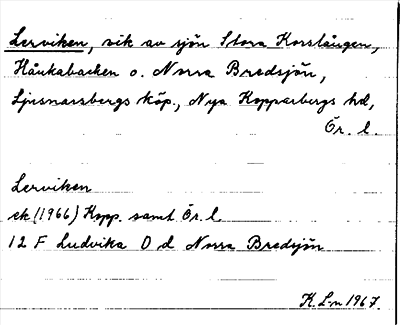 Lerviken, vik av sjön Stora Korslången,
Håukabacken o. Norra Bredsjön,
Ljusnarsbergs köp., Nya Kopparbergs hd,
Ör. l.
Lerviken
ek (1966) Kopp. samt Ör. l.
12 F Ludvika O d Norra Bredsjön
K. L-n 1967.